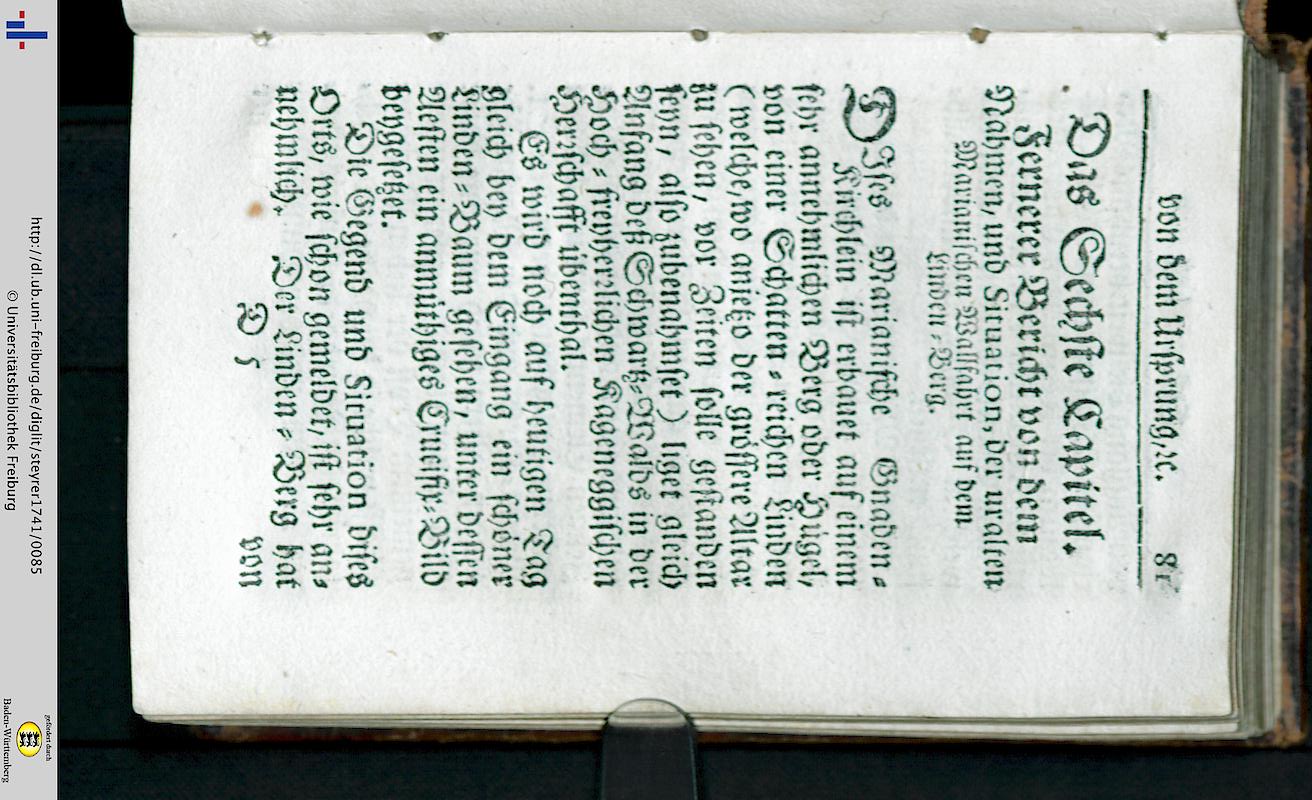 von dem Ursprung, ꝛc. 81
Das Sechste Capitel.
Fernerer Bericht von dem
Nahmen, und Situation, der uralten
Marianischen Wallfahrt auf dem
Linden-Berg.
DIses Marianische Gnaden-
Kirchlein ist erbauet auf einem
sehr annehmlichen Berg oder Hügel,
von einer Schatten-reichen Linden
(welche, wo anjetzo der grössere Altar
zu sehen, vor Zeiten solle gestanden
seyn, also zubenahmset) liget gleich
Anfang deß Schwartz-Walds in der
Hoch-freyherrlichen Kageneggischen
Herrschafft übenthal.
Es wird noch auf heutigen Tag
gleich bey dem Eingang ein schöner
Linden-Baum gesehen, unter dessen
Aesten ein anmüthiges Crucifix-Bild
beygesetzet.
Die Gegend und Situation dises
Orts, wie schon gemeldet, ist sehr an-
nehmlich. Der Linden-Berg hat
D 5 von
http://dl.ub.uni-freiburg.de/diglit/steyrer1741/0085
© Universitätsbibliothek Freiburg
gefördert durch
Baden-Württemberg